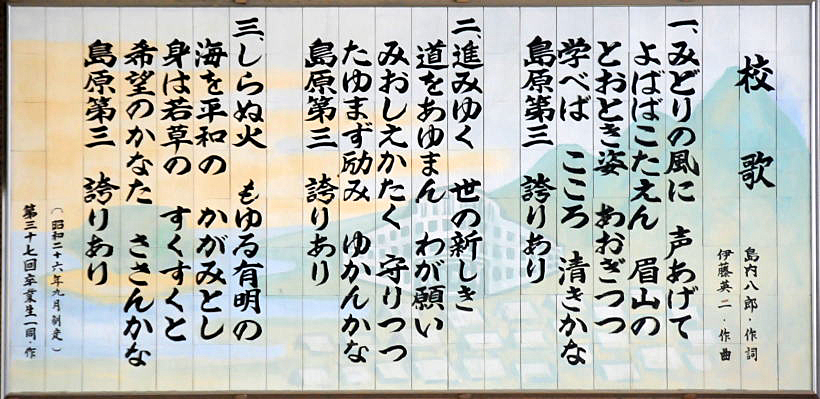 校歌
島内八郎・作詞
伊藤英二・作曲
一、みどりの風に 声あげて
よばばこたえん 眉山の
とおとき姿 あおぎつつ
学べば こころ 清きかな
島原第三 誇りあり
二、進みゆく 世の新しき
道をあゆまん わが願い
みおしえかたく 守りつつ
たゆまず励み ゆかんかな
島原第三 誇りあり
三、しらぬ火 もゆる有明の
海を平和の かがみとし
身は若草の すくすくと
希望のかなた ささんかな
島原第三 誇りあり
(昭和二十六年九月制定)
第三十七回卒業生一同・作